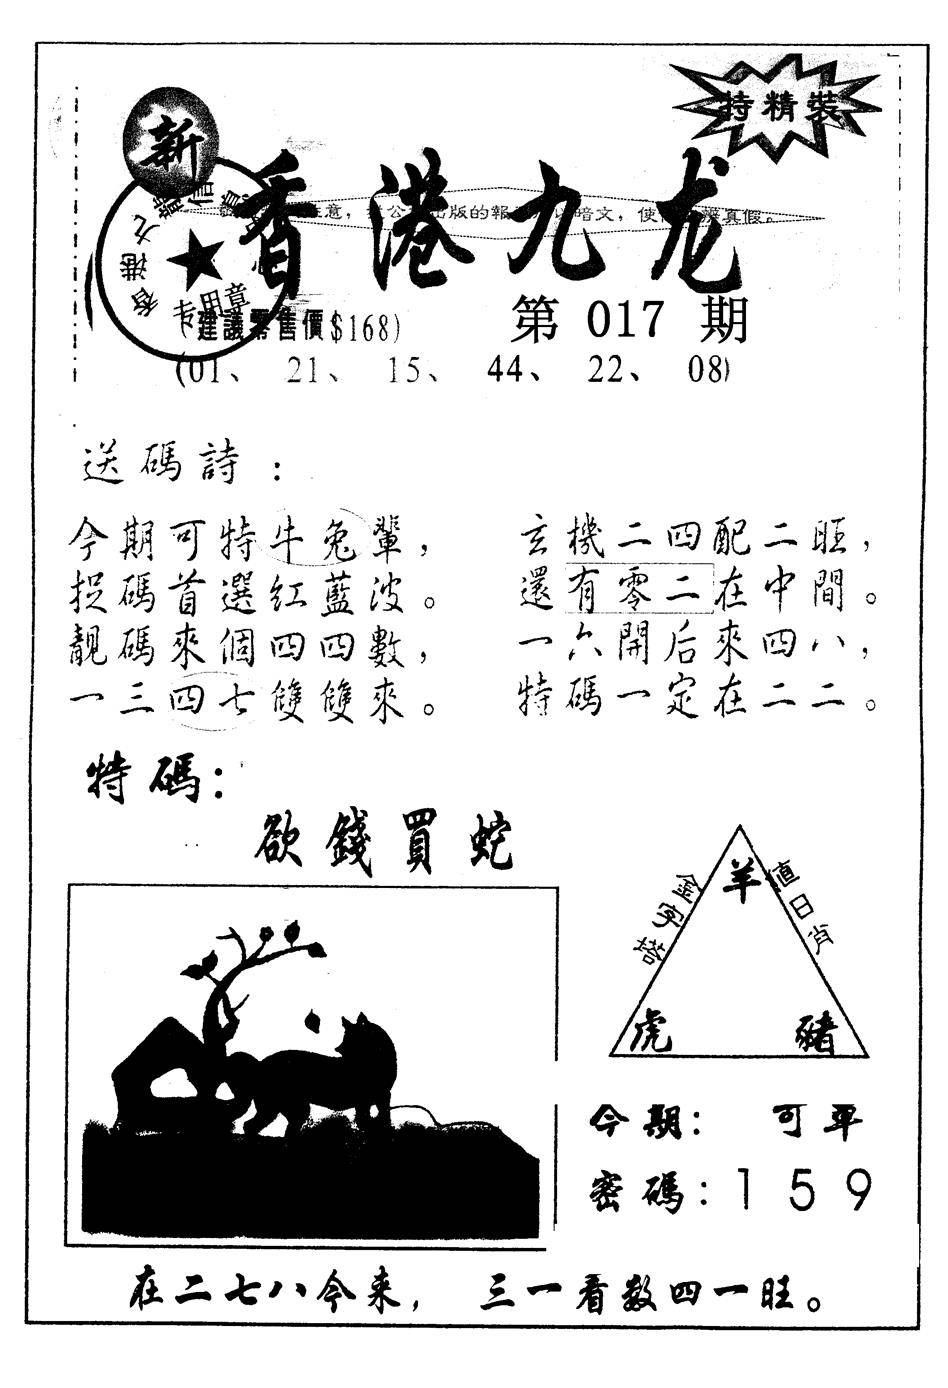 特精裝
新
香港九龙
香港九龍
信
专用章
意，
公
出版的報
暗文，使
真假。
(建議零售價$168)
第 017 期
(01、 21、 15、 44、 22、 08)
送碼詩：
今期可特牛兔輩，
捉碼首選紅藍波。
靚碼來個四四數，
一三四七雙雙來。
玄機二四配二旺，
還有零二在中間。
一六開后來四八，
特碼一定在二二。
特碼：
欲錢買蛇
金字塔
值日肖
羊
虎 豬
今期： 可平
密碼：159
在二七八今来， 三一看数四一旺。